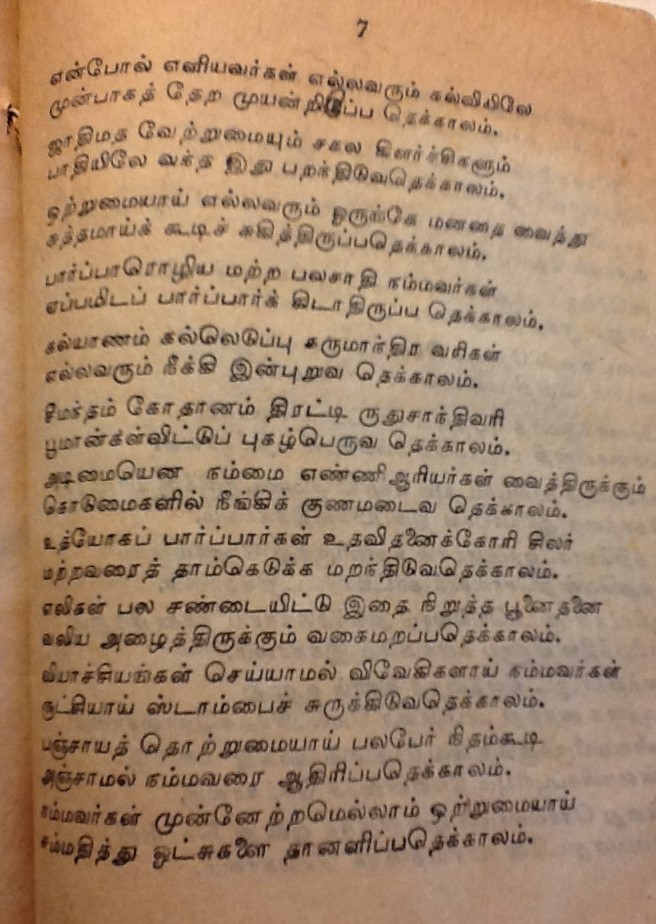 7
என்போல் எளியவர்கள் எல்லவரும் கல்வியிலே
முன்பாகத் தேற முயன்றிடுப்ப தெக்காலம்.
ஜாதிமத வேற்றுமையும் சகல கிளர்ச்சிகளும்
பாதியிலே வந்த இது பறந்திடுவதெக்காலம்.
ஒற்றுமையாய் எல்லவரும் ஒருங்கே மனதை வைத்து
சுத்தமாய்க் கூடிச் சுகித்திருப்பதெக்காலம்.
பார்ப்பாரொழிய மற்ற பலசாதி நம்மவர்கள்
எப்பமிடப் பார்ப்பார்க் கிடாதிருப்ப தெக்காலம்.
கல்யாணம் கல்லெடுப்பு கருமாந்திர வசிகள்
எல்லவரும் நீக்கி இன்புறுவ தெக்காலம்.
சீமந்தம் கோதானம் திரட்டி ருதுசாந்திவரி
பூமான்கள்விட்டுப் புகழ்பெருவ தெக்காலம்.
அடிமையென நம்மை எண்ணிஆரியர்கள் வைத்திருக்கும்
கொடுமைகளில் நீங்கிக் குணமடைவ தெக்காலம்.
உத்யோகப் பார்ப்பார்கள் உதவிதனைக்கோரி சிலர்
மற்றவரைத் தாம்கெடுக்க மறந்திடுவதெக்காலம்.
எலிகள் பல சண்டையிட்டு இதை நிறுத்த பூனைதனை
வலிய அழைத்திருக்கும் வகைமறப்பதெக்காலம்.
வியாச்சியங்கள் செய்யாமல் விவேகிகளாய் நம்மவர்கள்
சூட்சியாய் ஸ்டாம்பைச் சுருக்கிடுவதெக்காலம்.
பஞ்சாயத் தொற்றுமையாய் பலபேர் நிதம்கூடி
அஞ்சாமல் நம்மவரை ஆதிரிப்பதெக்காலம்.
நம்மவர்கள் முன்னேற்றமெல்லாம் ஒற்றுமையாய்
சம்மதித்து ஓட்சுகளை தானளிப்பதெக்காலம்.